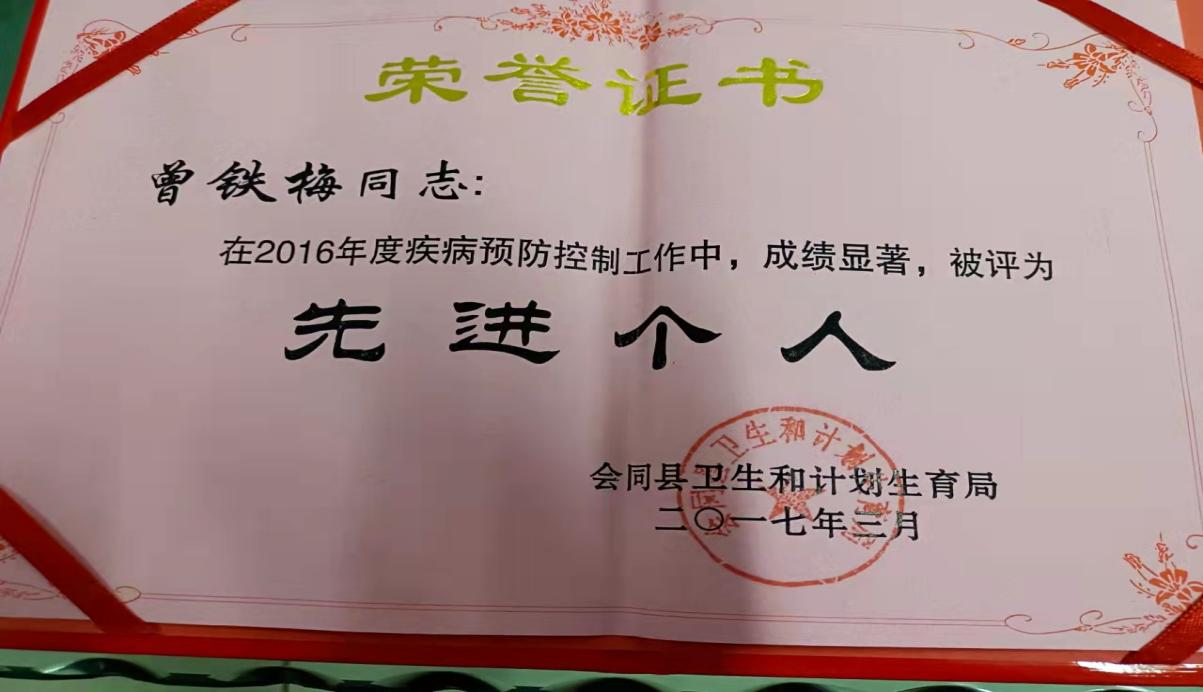 荣誉证书
曾铁梅同志:
在2016年度疾病预防控制工作中，成绩显著，被评为
先进个人
会同县卫生和计划生育局
二〇一七年三月
会同县卫生和计划生育局